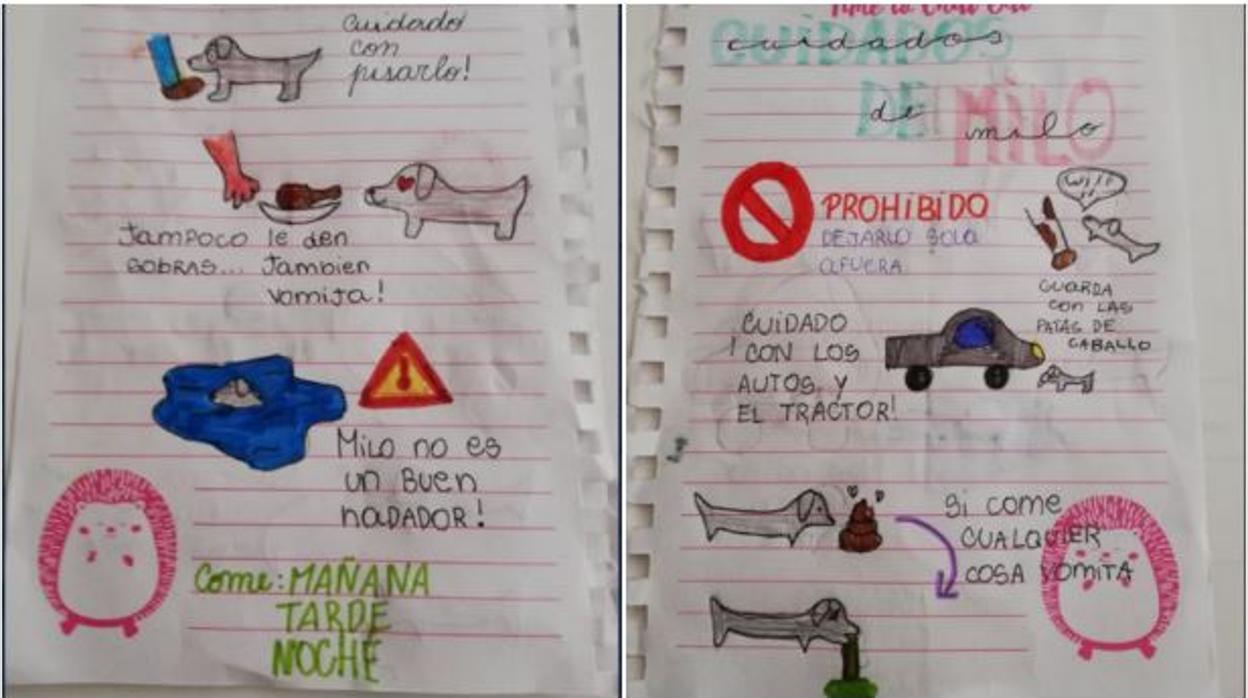 cuidado
con
pisarlo!
TAMPOCO le den
SOBRAS... Tambien
vomita!
Milo no es
un Buen
NADADOR!
Come: MAÑANA
TARDE
NOCHE
CUIDADOS
cuidados
DE MILO
de milo
PROHIBIDO
DEJARLO SOLO
AFUERA
GUARDA
CON LAS
PATAS DE
CABALLO
CUIDADO
¡CON LOS
AUTOS Y
EL TRACTOR!
Si come
CUALQUIER
COSA VOMITA